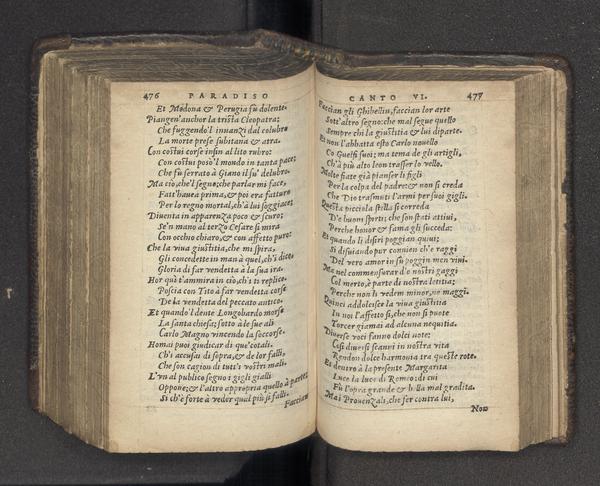 476 PARADISO
Et Modona & Perugia fu dolente.
Piangen'anchor la trista Cleopatra;
Che fuggendo'l innanzi dal colubro
La morte prese subitana & atra.
Con costui corse insin al lito rubro:
Con costui poso'l mondo in tanta pace;
Che fu serrato à Giano il su' delubro.
Ma ciò, che'l segno; che parlar mi face,
Fatt'havea prima, & poi era fatturo
Per lo regno mortal, ch'à lui soggiace;
Diventa in apparenza poco & scuro;
Se'n mano al terzo Cesare si mira
Con occhio chiaro, & con affetto puro:
Che la viva giustitia, che mi spira,
Gli concedette in man à quel, ch'i dico,
Gloria di far vendetta à la sua ira.
Hor quà t'ammira in ciò, ch'i ti replico.
Poscia con Tito à far vendetta corse
De la vendetta del peccato antico.
Et quando'l dente Longobardo morse
La santa chiesa; sotto à le sue ali
Carlo Magno vincendo la soccorse.
Homai puoi giudicar di que'cotali,
Ch'i accusai di sopra, & de lor falli,
Che son cagion di tutt'i vostri mali.
L'vn al publico segno i gigli gialli
Oppone; & l'altro appropria quello à parte;
Si ch'è forte à veder qual piu si falli.
Faccian
CANTO VI. 477
Faccian gli Ghibellin, faccian lor arte
Sott'altro segno: che mal segue quello
Sempre chi la giustitia & lui diparte.
Et non l'abbatta esto Carlo novello
Co Guelfi suoi; ma tema de gli artigli,
Ch'à più alto leon trasser lo vello.
Molte fiate già pianser li figli
Per la colpa del padre: & non si creda
Che Dio trasmuti l'armi per suoi gigli.
Questa picciola stella si correda
D'e buoni spirti; che son stati attivi,
Perche honor & fama gli succeda:
Et quando li disiri poggian quivi;
Si disuiando pur convien ch'e raggi
Del vero amor in sù poggin men vivi.
Ma nel commensurar d'e nostri gaggi
Col merto, è parte di nostra letitia;
Perche non li vedem minor, ne maggi.
Quinci addolcisce la viva giustitia
In noi l'affetto si, che non si puote
Torcer giamai ad alcuna nequitia.
Diverse voci fanno dolci note:
Così diversi scanni in nostra vita
Rendon dolce harmonia tra queste rote.
Et dentro à la presente Margarita
Luce la luce di Romeo; di cui
Fù l'opra grande & bella mal gradita.
Mai Prouenzali, che fer contra lui,
Non